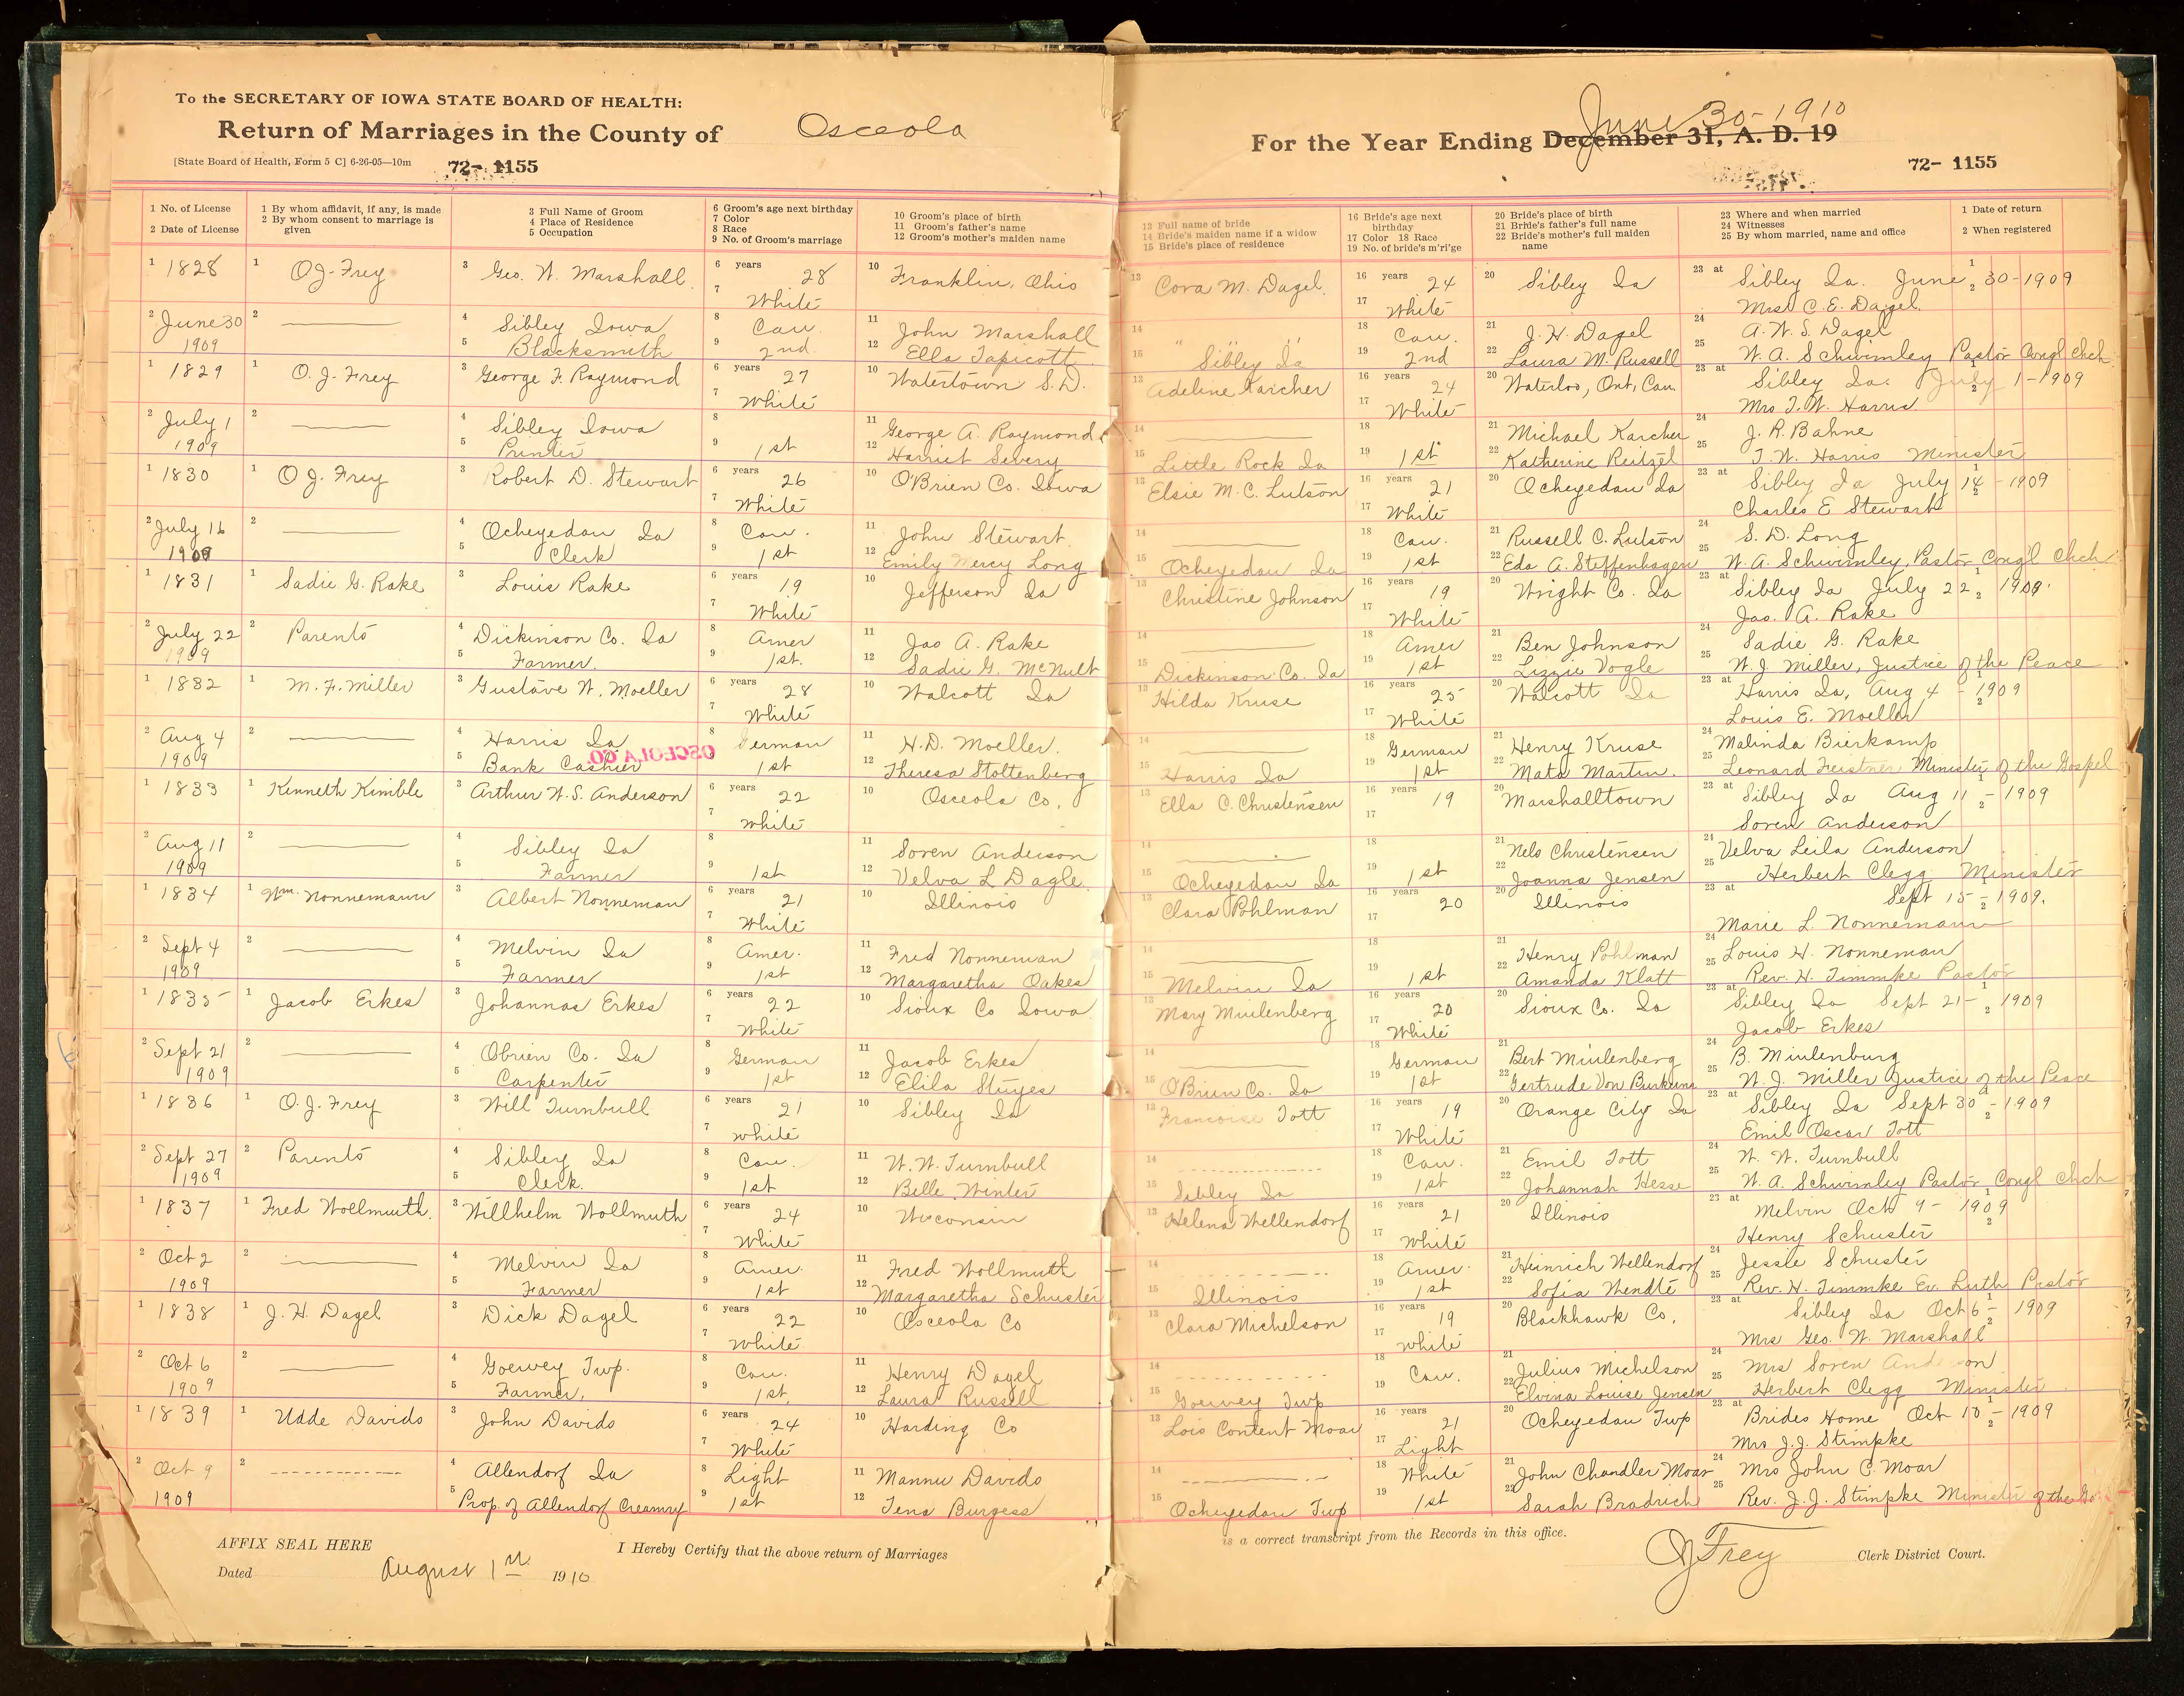 To the SECRETARY OF IOWA STATE BOARD OF HEALTH:
Return of Marriages in the County of Osceola
[State Board of Health, Form 5 C] 6-26-05—10m 72- 1155
1 No. of License
2 Date of License
1 By whom affidavit, if any, is made
2 By whom consent to marriage is given
3 Full Name of Groom
4 Place of Residence
5 Occupation
6 Groom's age next birthday
7 Color
8 Race
9 No. of Groom's marriage
10 Groom's place of birth
11 Groom's father's name
12 Groom's mother's maiden name
1 1828 1 O J. Frey 3 Geo. W. Marshall. 6 years 28 10 Franklin, Ohio
7 White
2 June 30 2 4 Sibley Iowa 8 Cau. 11 John Marshall
1909 5 Blacksmith 9 2nd. 12 Ella Tapscott
1 1829 1 O. J. Frey 3 George F. Raymond 6 years 27 10 Watertown S.D.
7 White
2 July 1 2 4 Sibley Iowa 8 11 George A. Raymond
1909 5 Printer 9 1st 12 Harriet Severy
1 1830 1 O J. Frey 3 Robert D. Stewart 6 years 26 10 O'Brien Co. Iowa
7 White
2 July 16 2 4 Ocheyedan Ia 8 Cau. 11 John Stewart.
1909 5 Clerk 9 1st 12 Emily Mercy Long
1 1831 1 Sadie G. Rake 3 Louis Rake 6 years 19 10 Jefferson Ia
7 White
2 July 22 2 Parents 4 Dickinson Co. Ia 8 Amer 11 Jas A. Rake
1909 5 Farmer. 9 1st. 12 Sadie G. McNult
1 1832 1 M. F. Miller 3 Gustave W. Moeller 6 years 28 10 Walcott Ia
7 White
2 Aug 4 2 4 Harris Ia 8 German 11 H.D. Moeller.
OSCEOLA CO.
1909 5 Bank Cashier 9 1st 12 Theresa Stoltenberg
1 1833 1 Kenneth Kimble 3 Arthur W. S. Anderson 6 years 22 10 Osceola Co.
7 White
2 Aug 11 2 4 Sibley Ia 8 11 Soren Anderson
1909 5 Farmer 9 1st 12 Velva L Dagle.
1 1834 1 Wm. Nonnemann 3 Albert Nonneman 6 years 21 10 Illinois
7 White
2 Sept 4 2 4 Melvin Ia 8 Amer. 11 Fred Nonneman
1909 5 Farmer 9 1st 12 Margaretha Oakes
1 1835 1 Jacob Erkes 3 Johannas Erkes 6 years 22 10 Sioux Co Iowa
7 White
2 Sept 21 2 4 Obrien Co. Ia 8 German 11 Jacob Erkes
1909 5 Carpenter 9 1st 12 Elila Stuyes
1 1836 1 O. J. Frey 3 Will Turnbull 6 years 21 10 Sibley Ia
7 white
2 Sept 27 2 Parents 4 Sibley Ia 8 Cau. 11 W. W. Turnbull
1909 5 Clerk. 9 1st 12 Belle Winter
1 1837 1 Fred Wollmuth. 3 Willhelm Wollmuth 6 years 24 10 Wisconsin
7 White
2 Oct 2 2 4 Melvin Ia 8 Amer. 11 Fred Wollmuth
1909 5 Farmer 9 1st 12 Margaretha Schuster
1 1838 1 J. H. Dagel 3 Dick Dagel 6 years 22 10 Osceola Co
7 White
2 Oct 6 2 4 Goewey Twp. 8 Cau. 11 Henry Dagel
1909 5 Farmer, 9 1st. 12 Laura Russell
1 1839 1 Udde Davids 3 John Davids 6 years 24 10 Harding Co
7 White
2 Oct 9 2 4 Allendorf Ia 8 Light 11 Mannie Davids
1909 5 Prop. of Allendorf Creamry 9 1st 12 Tena Burgess
AFFIX SEAL HERE I Hereby Certify that the above return of Marriages
Dated August 1st 1910
June 30-1910
For the Year Ending December 31, A. D. 19
72- 1155
13 Full name of bride
14 Bride's maiden name if a widow
15 Bride's place of residence
16 Bride's age next birthday
17 Color 18 Race
19 No. of bride's m'ri'ge
20 Bride's place of birth
21 Bride's father's full name
22 Bride's mother's full maiden name
23 Where and when married
24 Witnesses
25 By whom married, name and office
1 Date of return
2 When registered
13 Cora M. Dagel. 16 years 24 20 Sibley Ia 23 at Sibley Ia. June 30-1909
17 White Mrs C. E. Dagel.
14 " " 18 Cau. 21 J. H. Dagel 24 A. W. S. Dagel
15 Sibley Ia 19 2nd 22 Laura M. Russell 25 W. A. Schwimley Pastor Congl Chch
13 Adeline Karcher 16 years 24 20 Waterloo, Ont, Can. 23 at Sibley Ia. July 1-1909
17 White Mrs T. W. Harris.
14 18 21 Michael Karcher 24 J. R. Bahne
15 Little Rock Ia 19 1st 22 Katherine Reitzel 25 T. W. Harris Minister
13 Elsie M. C. Lutson 16 years 21 20 Ocheyedan Ia 23 at Sibley Ia July 14-1909
17 White Charles E Stewart
14 18 Cau. 21 Russell C. Lutson 24 S. D. Long
15 Ocheyedan Ia 19 1st 22 Eda A. Steffenhagen 25 W. A. Schwimley, Pastor Cong'l Chch
13 Christine Johnson 16 years 19 20 Wright Co. Ia 23 at Sibley Ia July 22, 1909.
17 White Jas. A. Rake
14 18 Amer 21 Ben Johnson 24 Sadie G. Rake
15 Dickinson Co. Ia 19 1st 22 Lizzie Vogle 25 W. J. Miller, Justice of the Peace
13 Hilda Kruse 16 years 25 20 Walcott Ia 23 at Harris Ia, Aug 4 - 1909
17 White Louis E. Moeller
14 18 German 21 Henry Kruse 24 Malinda Bierkamp
15 Harris Ia 19 1st 22 Mata Martin. 25 Leonard Feistner Minister of the Gospel
13 Ella C. Christensen 16 years 19 20 Marshalltown 23 at Sibley Ia Aug 11 - 1909
17 Soren Anderson
14 18 21 Nels Christensen 24 Velva Leila Anderson
15 Ocheyedan Ia 19 1st 22 Joanna Jensen 25 Herbert Clegg Minister
13 Clara Pohlman 16 years 20 20 Illinois 23 at Sept 15-1909.
17 Marie L. Nonnemann
14 18 21 Henry Pohlman 24 Louis H. Nonneman
15 Melvin Ia 19 1st 22 Amanda Klatt 25 Rev. H. Timmke Pastor
13 Mary Muilenberg 16 years 20 20 Sioux Co. Ia 23 at Sibley Ia Sept 21- 1909
17 White Jacob Erkes
14 18 German 21 Bert Muilenberg 24 B. Muilenburg
15 O'Brien Co. Ia 19 1st 22 Gertrude Von Burkum 25 W. J. Miller Justice of the Peace
13 Francoise Tott 16 years 19 20 Orange City Ia 23 at Sibley Ia Sept 30-1909
17 White Emil Oscar Tott
14 18 Cau. 21 Emil Tott 24 W. W. Turnbull
15 Sibley Ia 19 1st 22 Johannah Hesse 25 W. A. Schwimley Pastor Congl Chch
13 Helena Wellendorf 16 years 21 20 Illinois 23 at Melvin Oct 9- 1909
17 White Henry Schuster
14 18 Amer. 21 Heinrich Wellendorf 24 Jessie Schuster
15 Illinois 19 1st 22 Sofia Wendte 25 Rev. H. Timmke Ev. Luth Pastor
13 Clara Michelson 16 years 19 20 Blackhawk Co. 23 at Sibley Ia Oct 6- 1909
17 White Mrs Geo. W. Marshall
14 18 21 Julius Michelson 24 Mrs Soren Anderson
15 Goewey Twp 19 Cau. 22 Elvina Louise Jensen 25 Herbert Clegg Minister
13 Lois Content Moar 16 years 21 20 Ocheyedan Twp 23 at Brides Home Oct 10-1909
17 Light Mrs J. J. Stimpke
14 18 White 21 John Chandler Moar 24 Mrs John C. Moar
15 Ocheyedan Twp 19 1st 22 Sarah Brodrich 25 Rev. J. J. Stimpke Minister of the Go
is a correct transcript from the Records in this office.
O J Frey Clerk District Court.